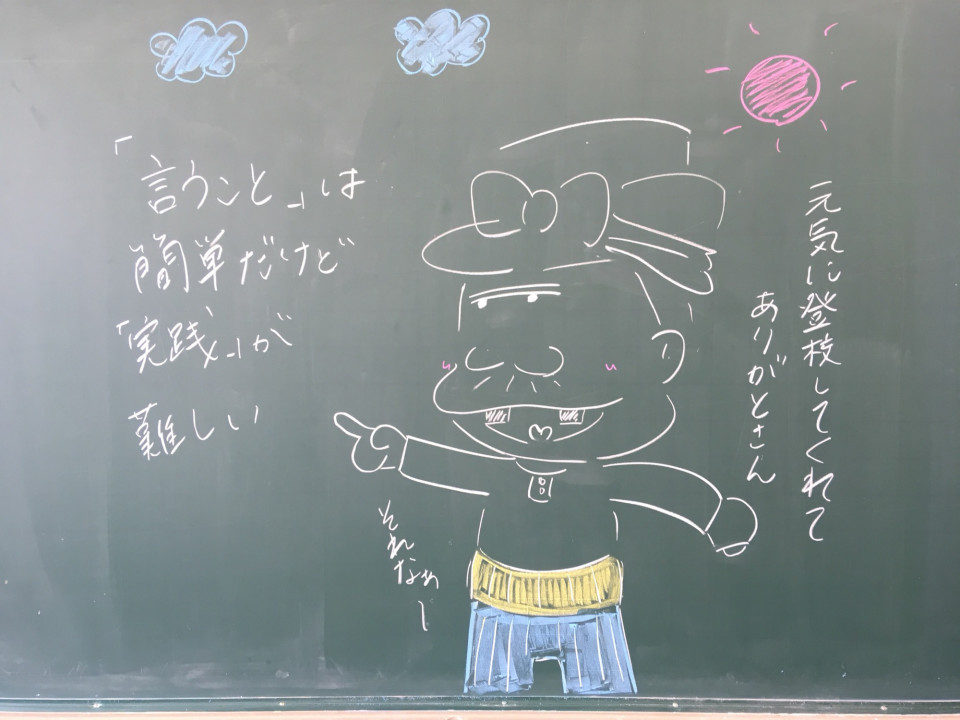 「言うこと」は
簡単だけど
「実践」が
難しい
それなぁー
元気に登校してくれて
ありがとさん